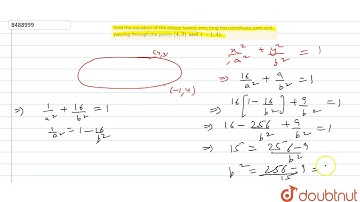 8488999
Find the equation of the ellipse having axes long the coordinate axes and
passing through the points (4, 3) and (-1, 4).
(4,3)
(-1,4)
x²/a² + y²/b² = 1
⇒ 16/a² + 9/b² = 1
⇒ 16[1 - 16/b²] + 9/b² = 1
⇒ 16 - 256/b² + 9/b² = 1
⇒ 15 = 256-9/b²
b² = 256-9/15 =
⇒ 1/a² + 16/b² = 1
1/a² = 1 - 16/b²
doubtnut